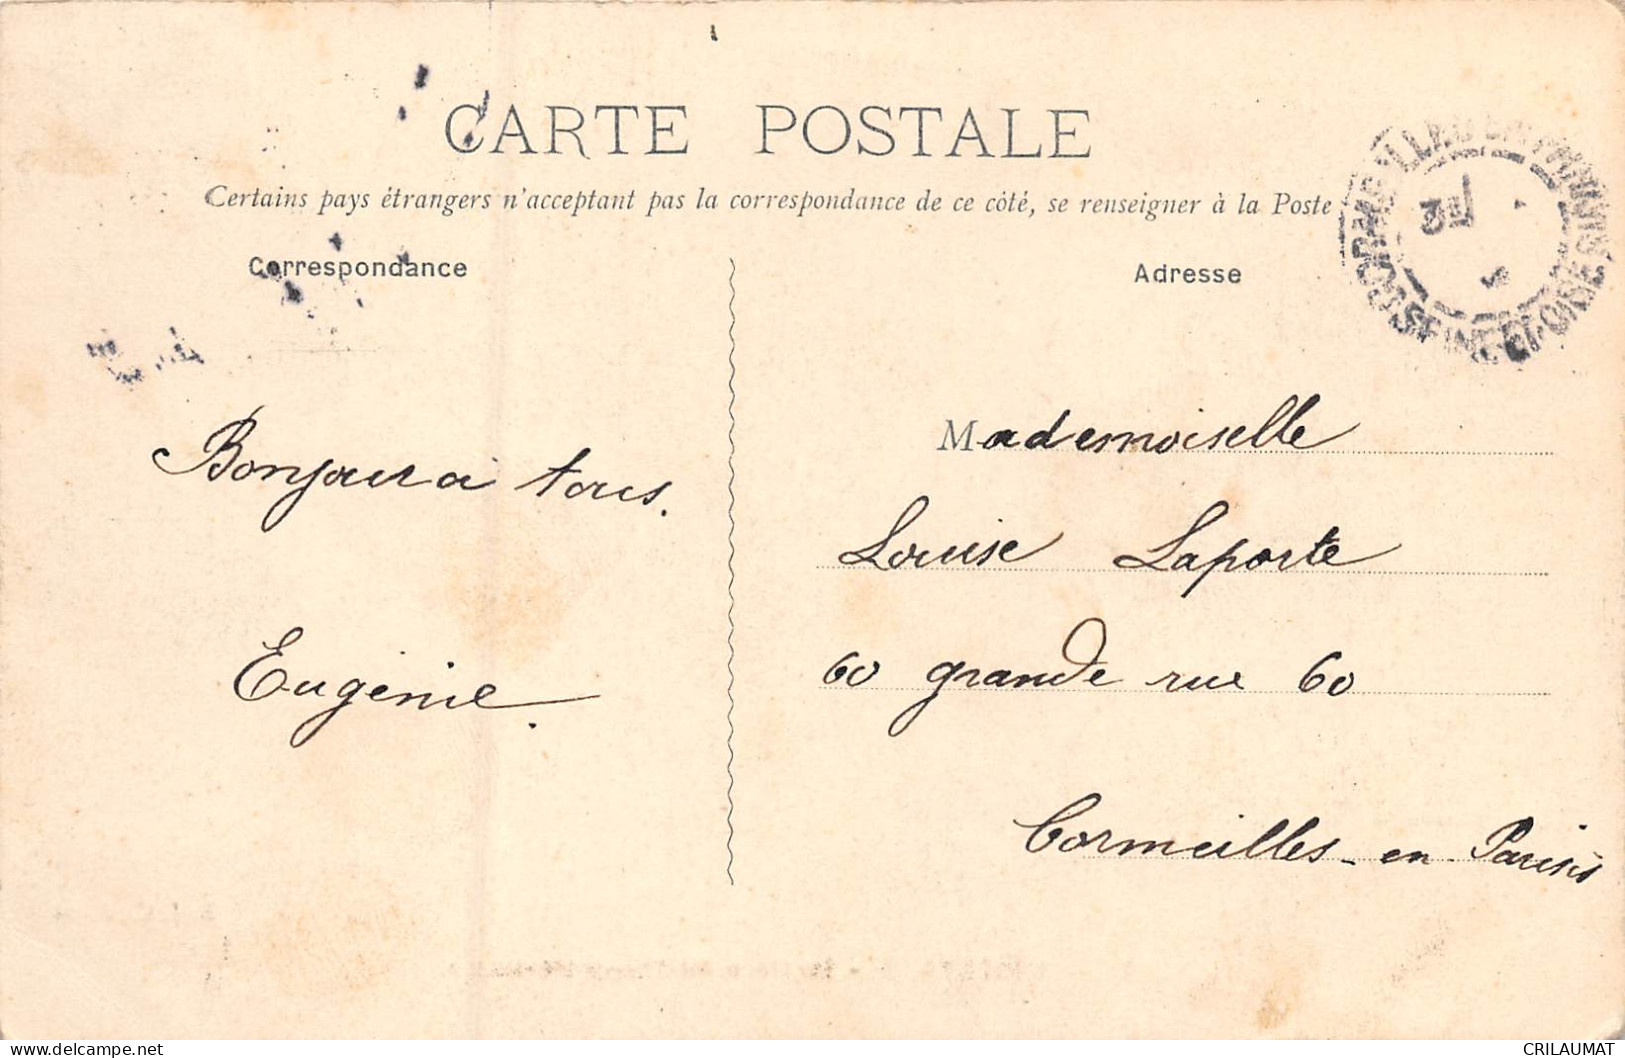 CARTE POSTALE
Certains pays étrangers n'acceptant pas la correspondance de ce côté, se renseigner à la Poste
Correspondance
Adresse
Bonjour a tous.
Eugénie.
Mademoiselle
Louise Laporte
60 grande rue 60
Cormeilles-en-Parisis
SEINE-ET-OISE
delcampe.net
CRILAUMAT